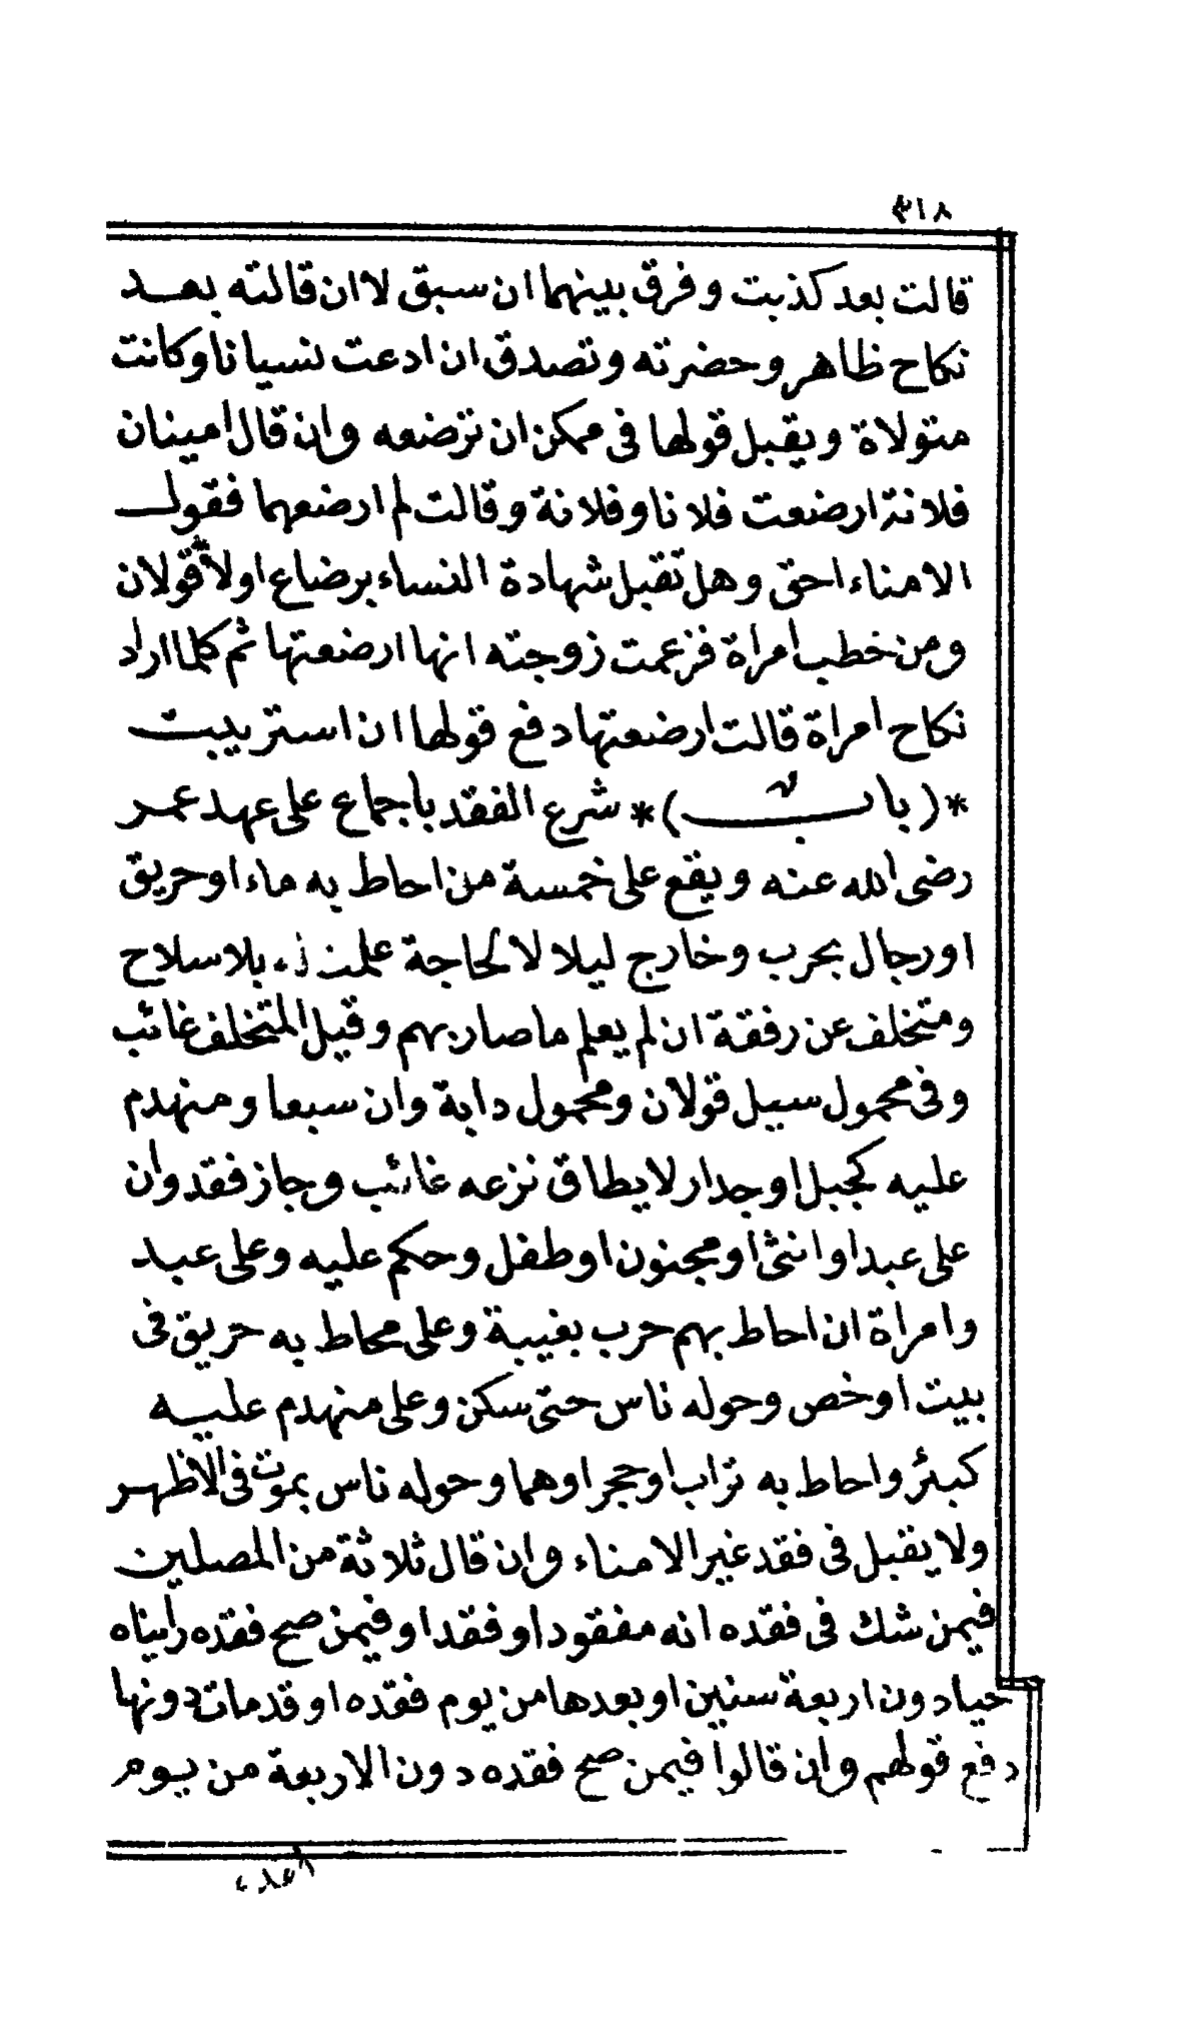 ٣١٨
قالت بعد كذبت وفرق بينهما ان سبق لا ان قالته بعد
نكاح ظاهر وحضرته وتصدق ان ادعت نسيانا وكانت
متولاة ويقبل قولها فى ممكن ان ترضعه وان قال امينان
فلانة ارضعت فلانا وفلانة وقالت لم ارضعهما فقول
الامناء احق وهل تقبل شهادة النساء برضاع اولا قولان
ومن خطب امراة فزعمت زوجته انها ارضعتها ثم كلما اراد
نكاح امراة قالت ارضعتها دفع قولها ان استريبت
*(باب)* شرع الفقد باجماع على عهد عمر
رضى الله عنه ويقع على خمسة من احاط به ماء او حريق
او رجال بحرب وخارج ليلا لا لحاجة علمت بلا سلاح
ومتخلف عن رفقة ان لم يعلم ما صار بهم وقيل المتخلف غائب
وفى محمول سيل قولان ومحمول دابة وان سبعا ومنهدم
عليه كجبل او جدار لا يطاق نزعه غائب وجاز فقد وان
على عبد او انثى او مجنون او طفل وحكم عليه وعلى عبد
وامراة ان احاط بهم حرب بغيبة وعلى محاط به حريق فى
بيت او خص وحوله ناس حتى سكن وعلى منهدم عليه
كبئر واحاط به تراب او حجر او هما وحوله ناس بموت فى الاظهر
ولا يقبل فى فقد غير الامناء وان قال ثلاثة من المصلين
فيمن شك فى فقده انه مفقود او فقد او فيمن صح فقده رايناه
حيا دون اربعة سنين او بعدها من يوم فقده او قد مات دونها
دفع قولهم وان قالوا فيمن صح فقده دون الاربعة من يوم